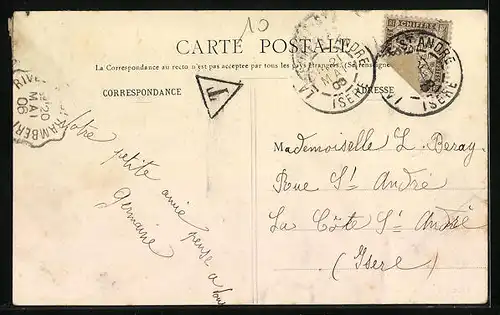 10
CARTE POSTALE
La Correspondance au recto n'est pas acceptée par tous les pays étrangers. (Se renseigner
CORRESPONDANCE
ADRESSE
T
CHIFFRE
ST ANDRÉ
(ISÈRE)
LA
21
MAI
06
(ISÈRE)
RIVES
20
MAI
06
RAMBERT
Votre
petite amie pense à vous
Germaine
Mademoiselle L. Beray
Rue St André
La Côte St André
(Isère)